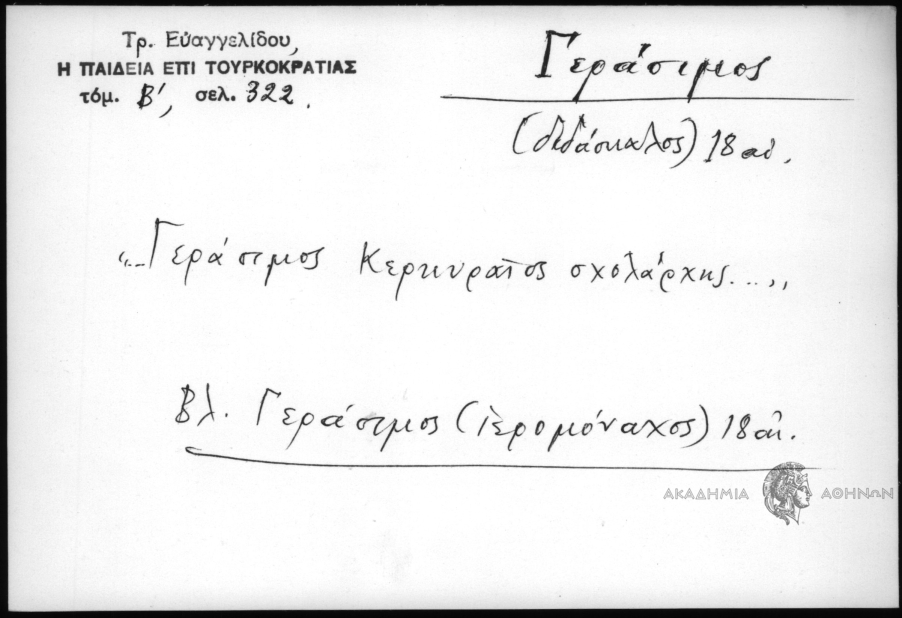 Τρ. Εὐαγγελίδου,
Η ΠΑΙΔΕΙΑ ΕΠΙ ΤΟΥΡΚΟΚΡΑΤΙΑΣ
τόμ. Β', σελ. 322.
Γεράσιμος
(διδάσκαλος) 18 αἰ.
"...Γεράσιμος Κερκυραῖος σχολάρχης..."
Βλ. Γεράσιμος (ἱερομόναχος) 18 αἰ.
ΑΚΑΔΗΜΙΑ ΑΘΗΝΩΝ